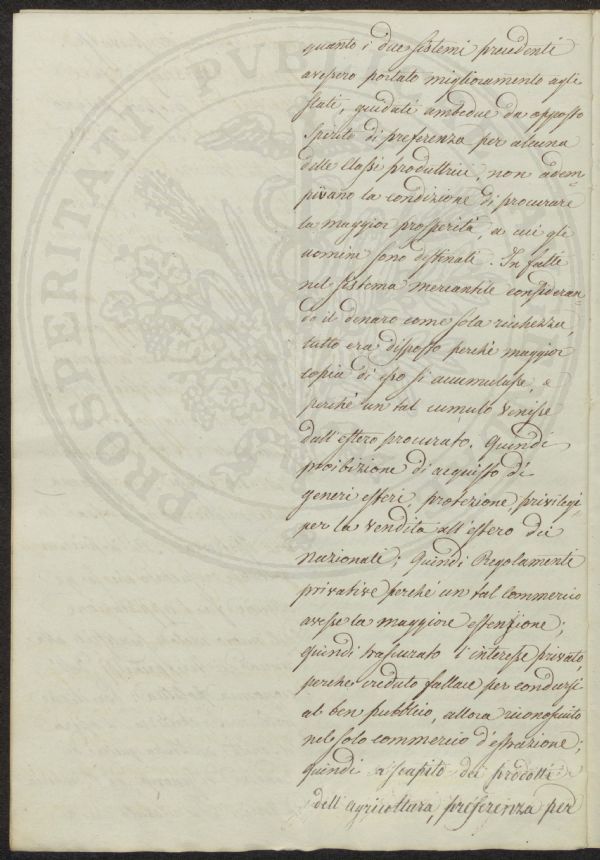 quanto i due sistemi precedenti
avessero portato miglioramento agli
stati, guidati ambedue da opposto
spirito di preferenza per alcuna
delle classi produttrici, non adem=
pivano la condizione di procurare
la maggior prosperità, a cui gli
uomini sono destinati. In fatti
nel sistema mercantile consideran=
do il denaro come sola richezza
tutto era disposto perchè maggior
copia di esso si accumulasse, e
perchè un tal cumulo venisse
dall'estero procurato. Quindi
proibizione di acquisto di
generi esteri, protezione, privilegi
per la vendita all'estero dei
nazionali; quindi Regolamenti
privative perchè un tal commercio
avesse la maggiore estensione;
quindi trascurato l'interesse privato,
perchè creduto fallace per condursi
al ben pubblico, allora riconosciuto
nel solo commercio d'estrazione;
quindi a scapito dei prodotti
dell'agricoltura, preferenza per
PROSPERITATI PVBLICAE